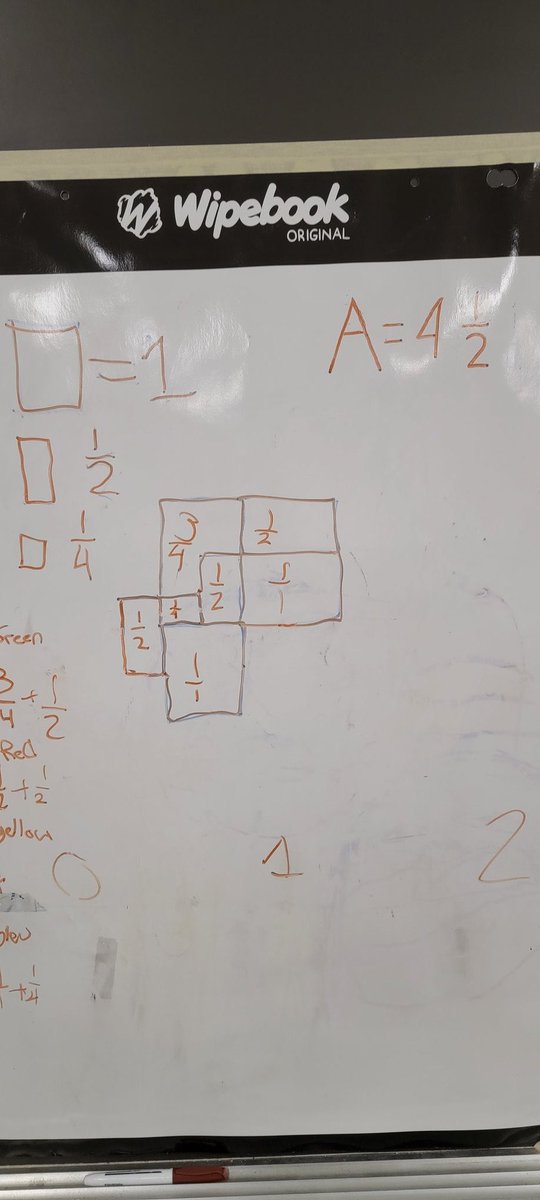 Wipebook
ORIGINAL
□ = 1
A = 4 1/2
1/2
1/4
3/4
1/2
1/2
1/1
1/2
1/4
1/1
Green
3/4 + 1/2
Red
1/2 + 1/2
yellow
0 1 2
1/1 + 1/4